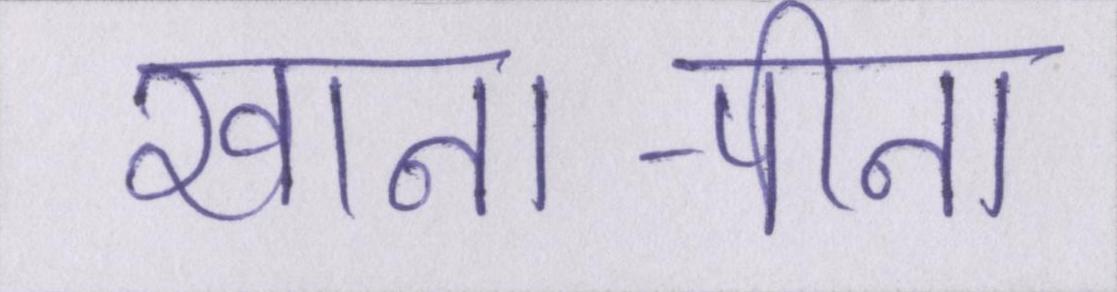 खाना-पीना